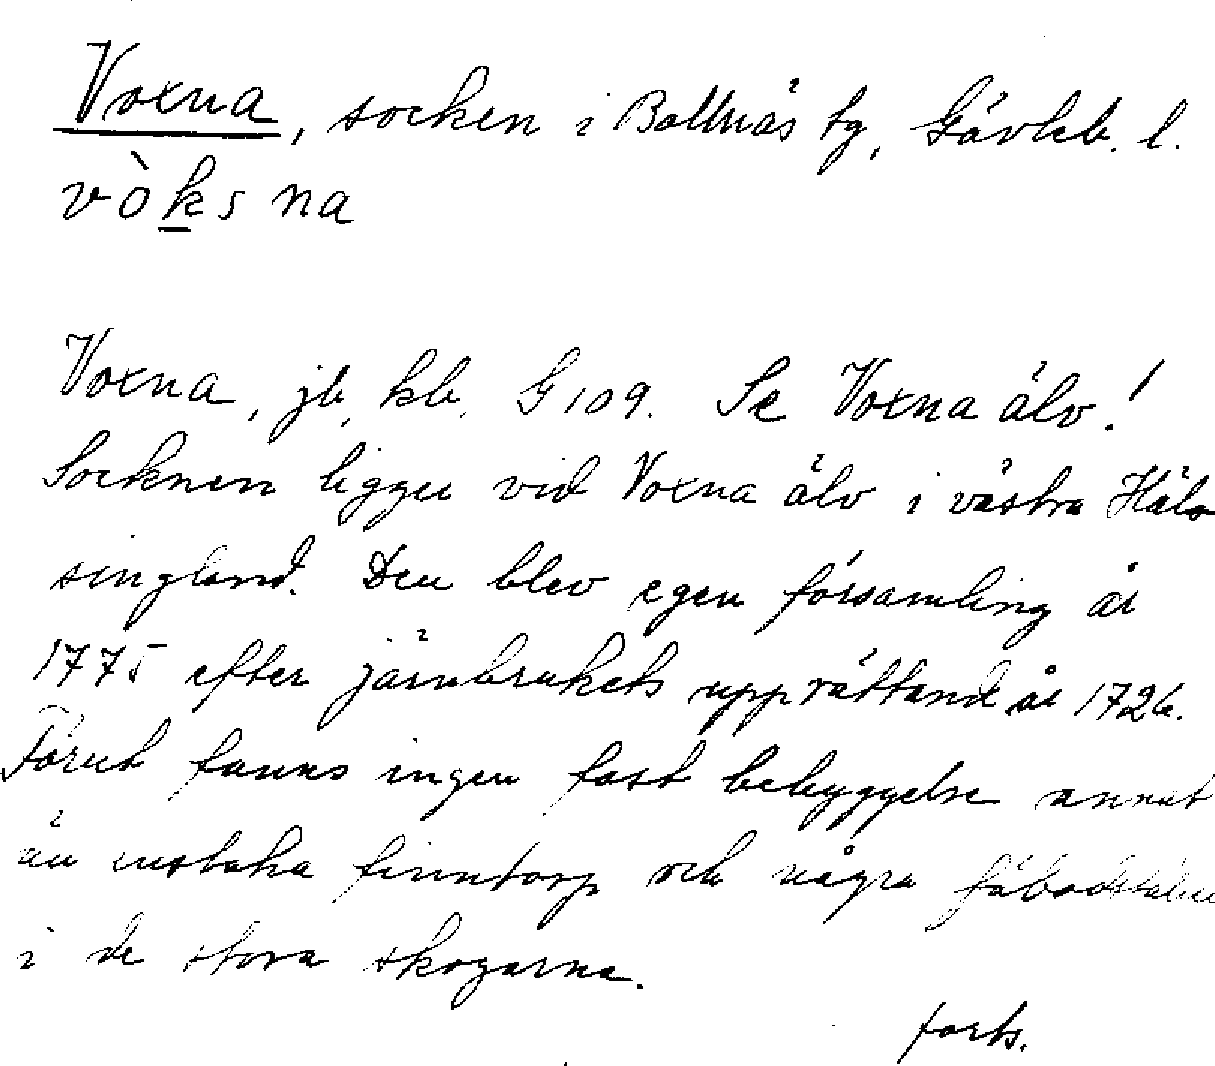 Voxna, socken i Bollnäs tg, Gävleb. l.
vòksna
Voxna, jb, kb. G 109. Se Voxna älv!
Socknen ligger vid Voxna älv i västra Häl-
singland. Den blev egen församling år
1775 efter järnbrukets upprättande år 1726.
Förut fanns ingen fast bebyggelse annat
än enstaka finntorp och några fäbodställen
i de stora skogarna.
forts.